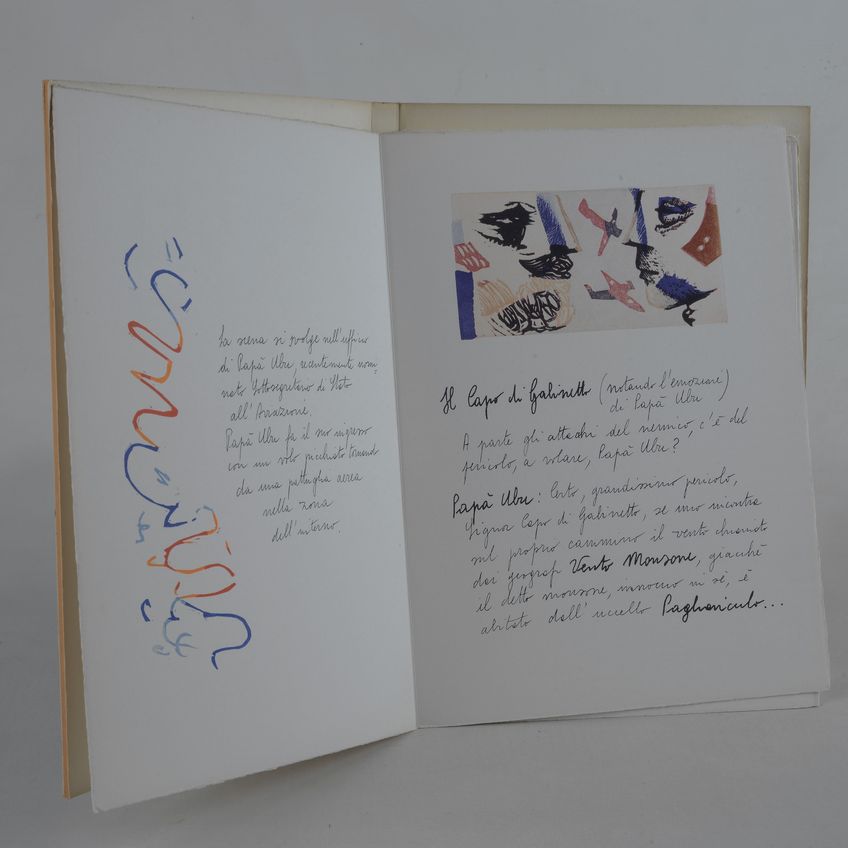 La scena si svolge nell'ufficio
di Papà Ubu, recentemente nomi-
nato Sottosegretario di Stato
all'Aviazione.
Papà Ubu fa il suo ingresso
con un volo picchiato tornando
da una pattuglia aerea
nella zona
dell'interno.
Il Capo di Gabinetto (notando l'emozione
di Papà Ubu)
A parte gli attacchi del nemico, c'è del
pericolo, a volare, Papà Ubu?
Papà Ubu: Certo, grandissimo pericolo,
Signor Capo di Gabinetto, se uno incontra
sul proprio cammino il vento chiamato
dai geografi Vento Monsone, giacché
il detto monsone, innocuo in sé, è
abitato dall'uccello